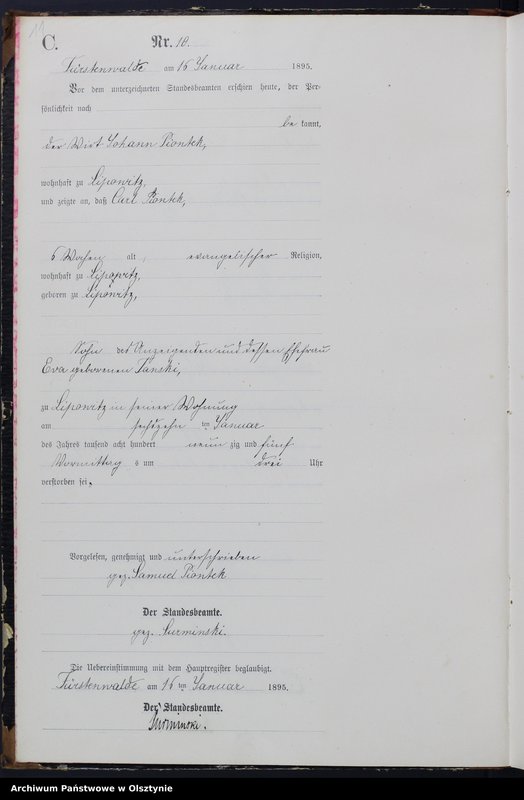 C. Nr. 10.
Fürstenwalde am 16 Januar 1895.
Vor dem unterzeichneten Standesbeamten erschien heute, der Per-
sönlichkeit nach
be kannt,
der Wirt Johann Piontek,
wohnhaft zu Lipowitz,
und zeigte an, daß Carl Piontek,
6 Wochen alt, evangelischer Religion,
wohnhaft zu Lipowitz,
geboren zu Lipowitz,
Sohn des Anzeigenden und dessen Ehefrau
Eva geborenen
zu Lipowitz in seiner Wohnung
am sechzehn ten Januar
des Jahres tausend acht hundert neun zig und fünf
Vormittag s um drei Uhr
verstorben sei.
Vorgelesen, genehmigt und unterschrieben
gez. Samuel Piontek
Der Standesbeamte.
gez. Surminski.
Die Uebereinstimmung mit dem Hauptregister beglaubigt.
Fürstenwalde am 16 ten Januar 1895.
Der Standesbeamte.
Surminski.
Archiwum Państwowe w Olsztynie